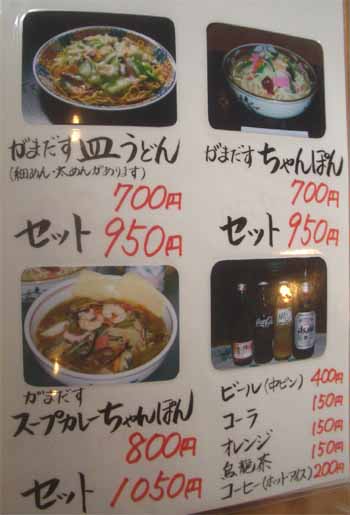 がまだす皿うどん
(細めん・太めんがあります)
700円
セット 950円
がまだすちゃんぽん
700円
セット 950円
がまだす
スープカレーちゃんぽん
800円
セット 1050円
ビール(中ビン) 400円
コーラ 150円
オレンジ 150円
烏龍茶 150円
コーヒー(ホット・アイス) 200円